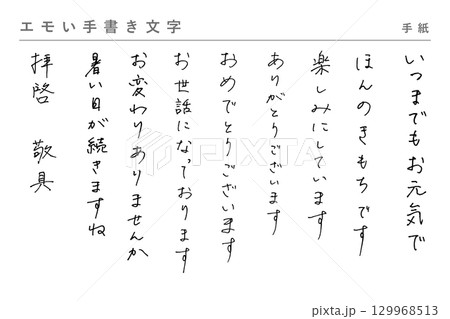 エモい手書き文字
手紙
いつまでもお元気で
ほんのきもちです
楽しみにしています
ありがとうございます
おめでとうございます
お世話になっております
お変わりありませんか
暑い日が続きますね
拝啓 敬具
PIXTA
pixta.jp - 129968513